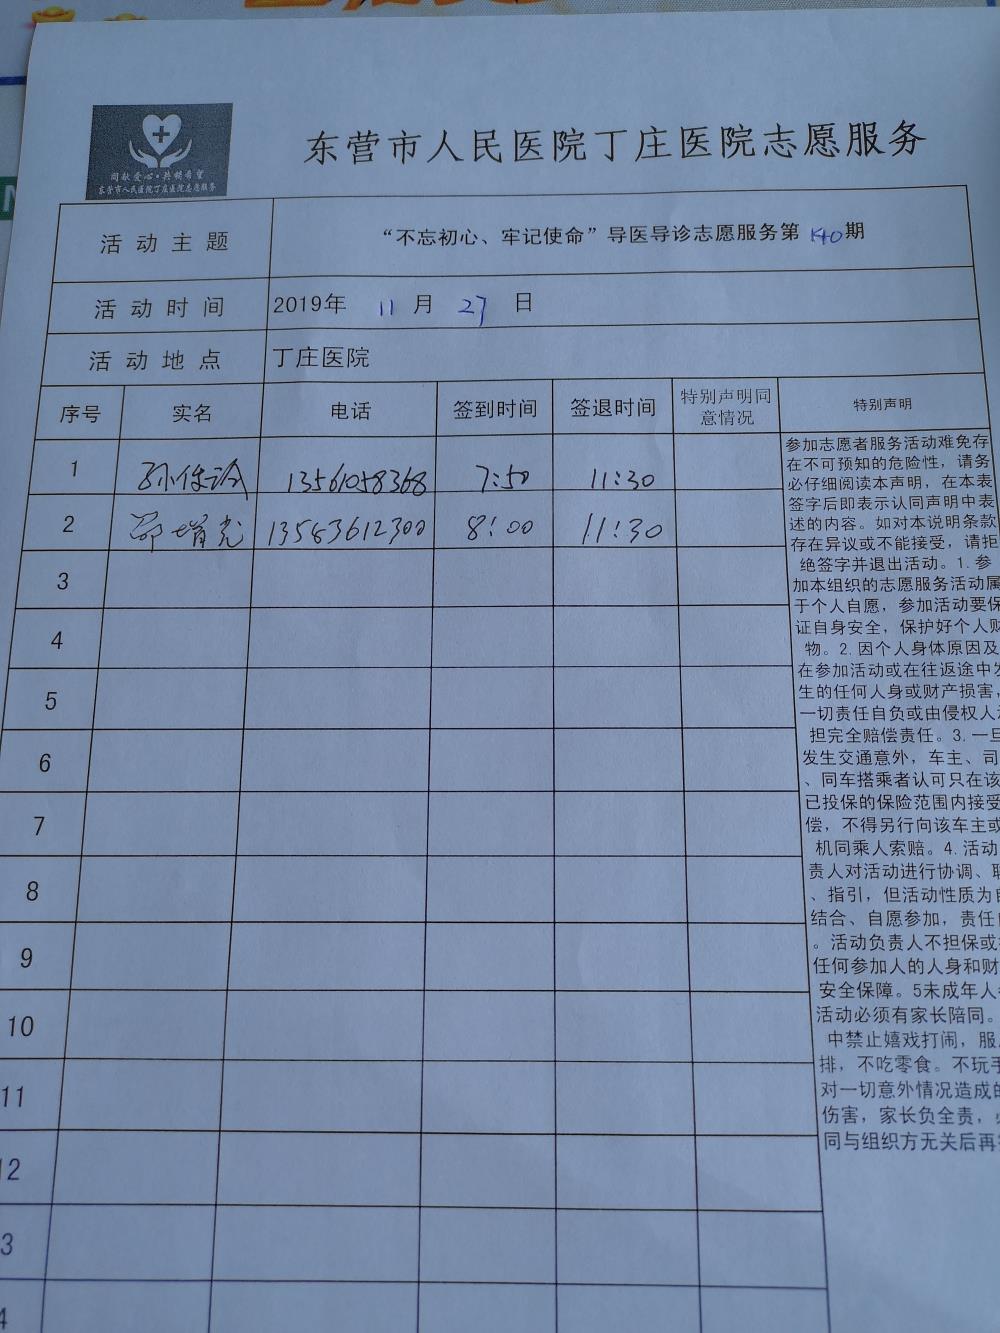 同献爱心·共铸希望
东营市人民医院丁庄医院志愿服务
东营市人民医院丁庄医院志愿服务
活动主题 “不忘初心、牢记使命”导医导诊志愿服务第140期
活动时间 2019年 11 月 27 日
活动地点 丁庄医院
序号 实名 电话 签到时间 签退时间 特别声明同意情况 特别声明
1 13561058368 7:50 11:30
2 13563612300 8:00 11:30
3
4
5
6
7
8
9
10
11
12
3
4
参加志愿者服务活动难免存
在不可预知的危险性，请务
必仔细阅读本声明，在本表
签字后即表示认同声明中表
述的内容。如对本说明条款
存在异议或不能接受，请拒
绝签字并退出活动。1.参
加本组织的志愿服务活动属
于个人自愿，参加活动要保
证自身安全，保护好个人财
物。2.因个人身体原因及
在参加活动或在往返途中发
生的任何人身或财产损害，
一切责任自负或由侵权人承
担完全赔偿责任。3.一旦
发生交通意外，车主、司
、同车搭乘者认可只在该
已投保的保险范围内接受
偿，不得另行向该车主或
机同乘人索赔。4.活动
责人对活动进行协调、联
、指引，但活动性质为自
结合、自愿参加，责任自
。活动负责人不担保或
任何参加人的人身和财
安全保障。5未成年人
活动必须有家长陪同。
中禁止嬉戏打闹，服
排，不吃零食。不玩手
对一切意外情况造成的
伤害，家长负全责，
同与组织方无关后再